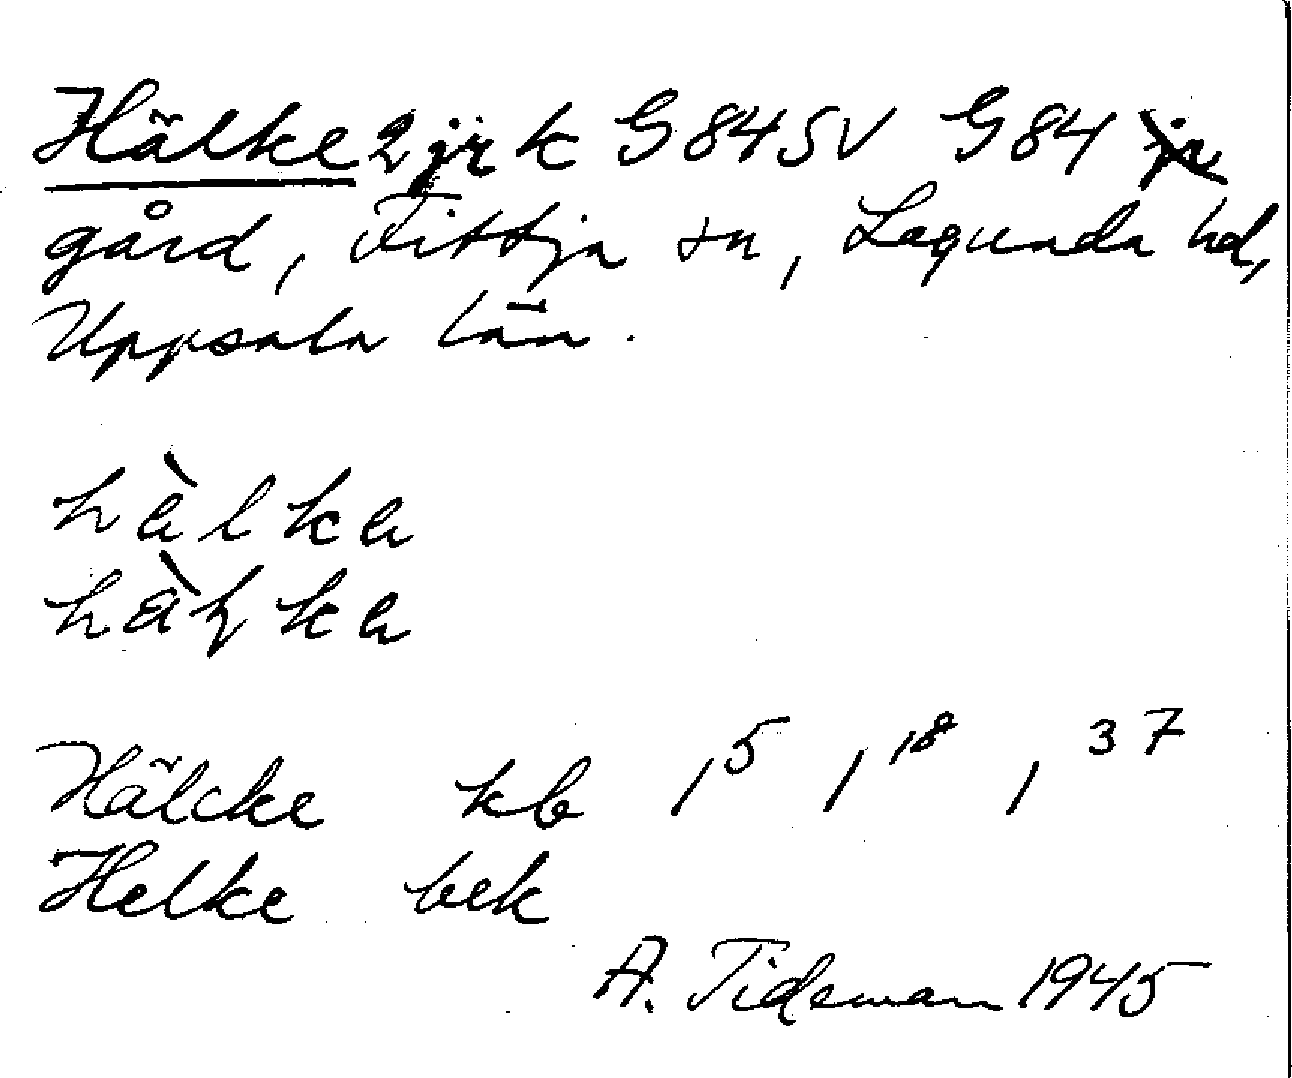 Hälke 2 jr k G 84 SV G 84
gård, Fittja sn, Lagunda hd,
Uppsala län.
hàlka
Hälcke kb , 5 , 18 , 37
Helke bek
A. Tideman 1945